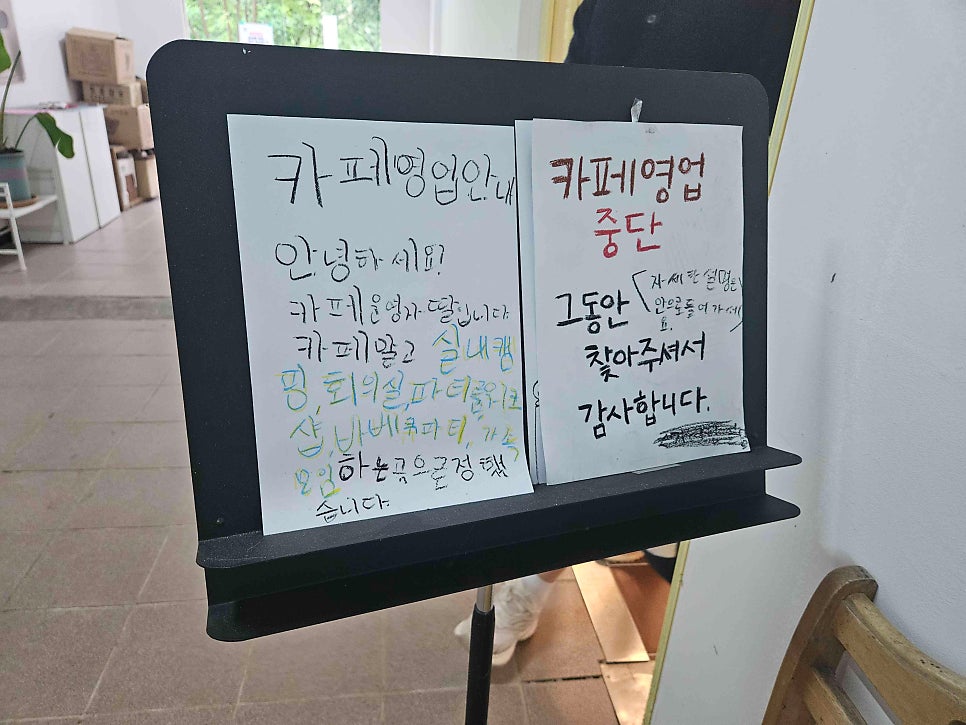 카페영업안내
안녕하세요?
카페운영자 딸입니다
카페말고 실내캠
핑, 회의실, 파티룸, 워크
샵, 바베큐파티, 가족
모임하는곳으로정했
습니다.
카페영업
중단
(자세한 설명은
안으로들어가세
요.)
그동안
찾아주셔서
감사합니다.